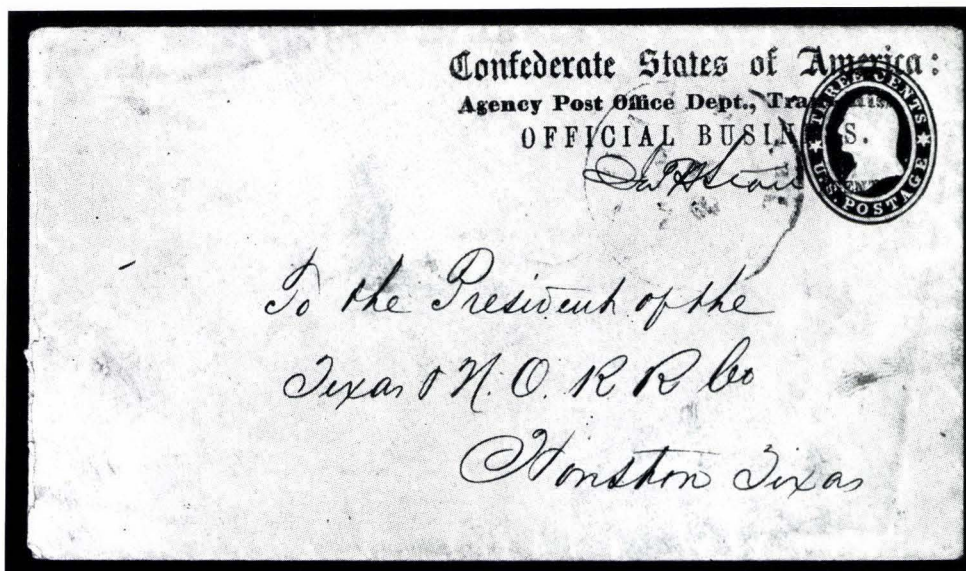 Confederate States of America:
Agency Post Office Dept., Trans-Miss
OFFICIAL BUSINESS.
THREE CENTS
U.S. POSTAGE
To the President of the
Texas & N. O. R R Co
Houston Texas